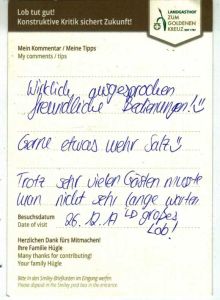 Lob tut gut!
Konstruktive Kritik sichert Zukunft!
LANDGASTHOF
ZUM
GOLDENEN
KREUZ
Mein Kommentar / Meine Tipps
My comments / tips
Wirklich ausgesprochen
freundliche Bedienungen!!
Gerne etwas mehr Salz
Trotz sehr vielen Gästen musste
man nicht sehr lange warten
Besuchsdatum
Date of visit
26.12.17
großes
Lob!
Herzlichen Dank fürs Mitmachen!
Ihre Familie Hügle
Many thanks for contributing!
Your family Hügle
Bitte in den Smiley-Briefkasten im Eingang werfen.
Please deposit in the Smiley post box in the entrance.